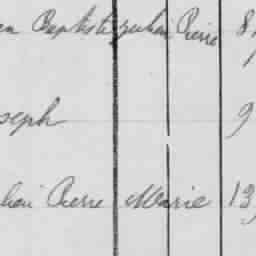 en Baptiste Julien Pierre 8
seph 9
lien Pierre Marie 13